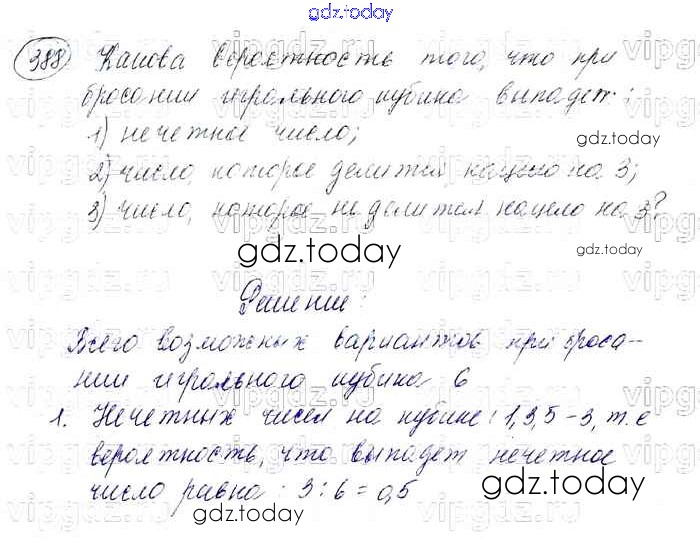 gdz.today
388 Какова вероятность того, что при
бросании игрального кубика выпадет:
1) нечетное число;
gdz.today
2) число, которое делится нацело на 3;
3) число, которое не делится нацело на 3?
gdz.today
gdz.today
Решение:
Всего возможных вариантов при броса-
нии игрального кубика 6
gdz.today
1. Нечетных чисел на кубике: 1,3,5 - 3, т.е
вероятность, что выпадет нечетное
число равна: 3:6=0,5
gdz.today
gdz.today